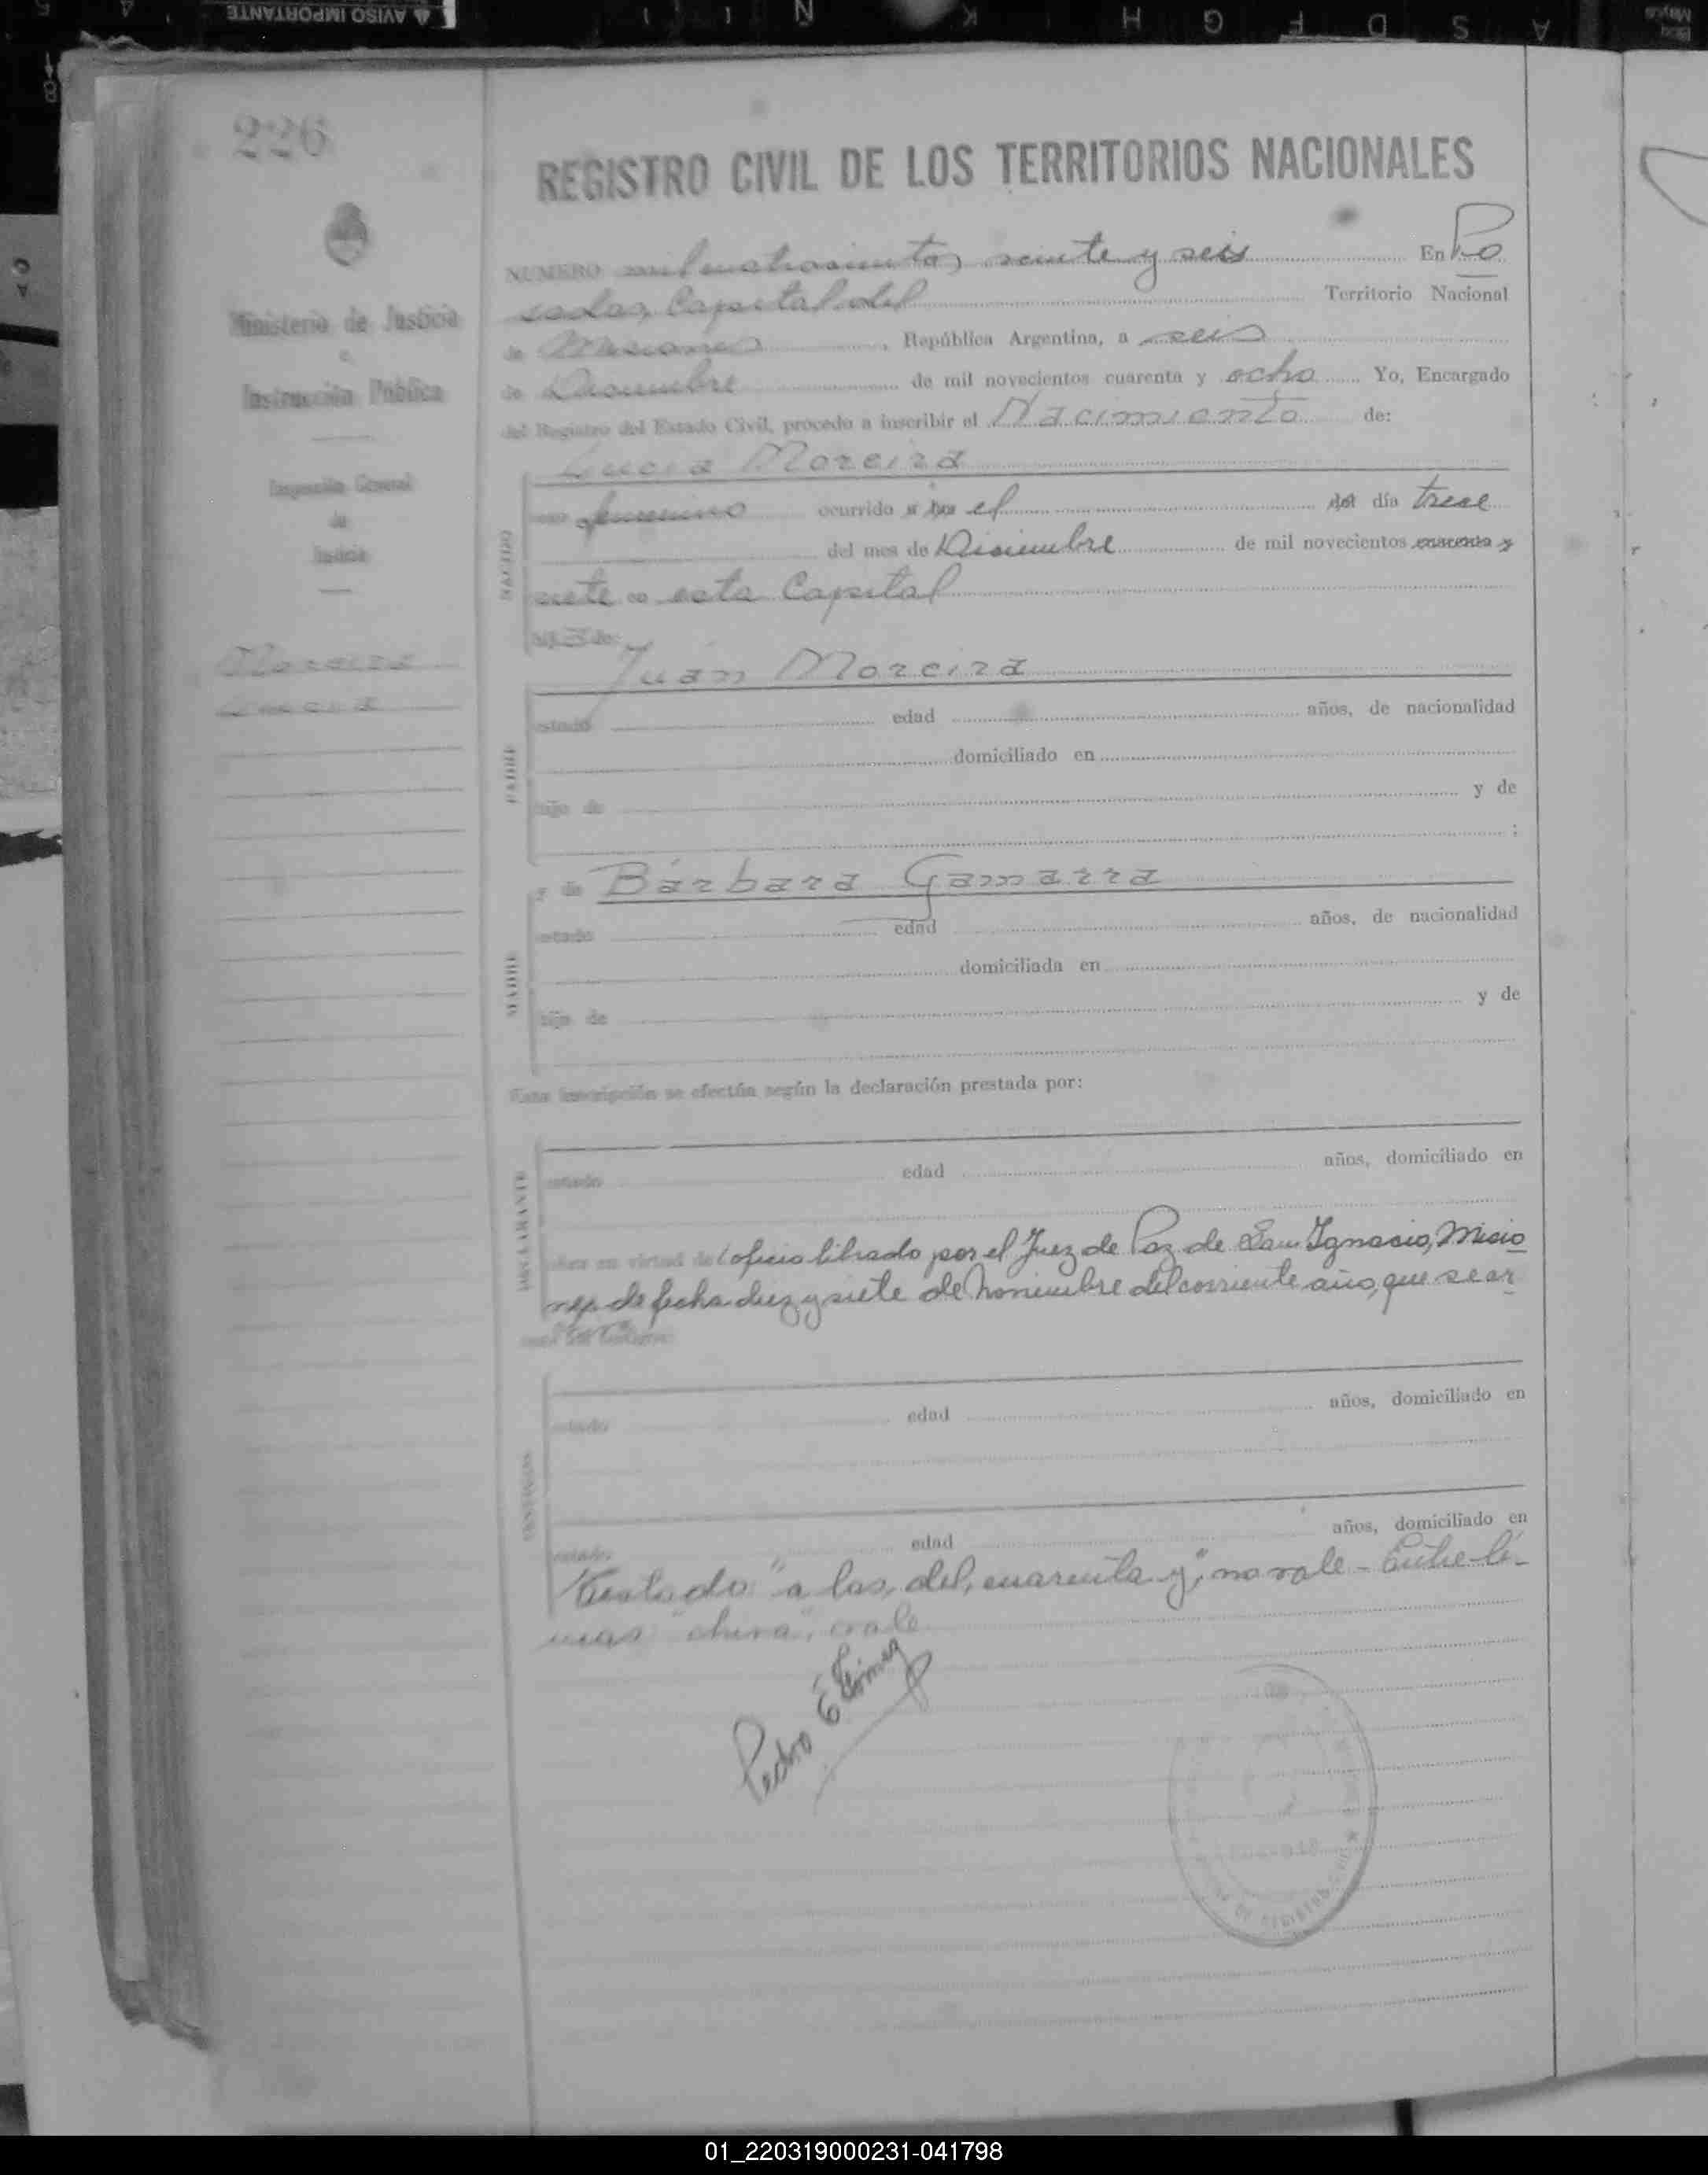 AVISO IMPORTANTE
226
REGISTRO CIVIL DE LOS TERRITORIOS NACIONALES
NUMERO mil cuatrocientos veinte y seis En Po
sadas, Capital del Territorio Nacional
de Misiones, República Argentina, a seis
de Diciembre de mil novecientos cuarenta y ocho Yo, Encargado
del Registro del Estado Civil, procedo a inscribir el Nacimiento de:
Lucia Moreira
Ministerio de Justicia
e
Instrucción Pública
Inspección General
de
Justicia
Moreira
Lucia
NACIDO
sexo femenino ocurrido a las el del día trece
del mes de Diciembre de mil novecientos cuarenta y
siete en esta Capital
hija de:
Juán Moreira
PADRE
estado edad años, de nacionalidad
domiciliado en
hijo de y de
;
y de Bárbara Gamarra
MADRE
estado edad años, de nacionalidad
domiciliada en
hija de y de
Esta inscripción se efectúa según la declaración prestada por:
DECLARANTE
estado edad años, domiciliado en
en virtud de oficio librado por el Juez de Paz de San Ignacio, Misio
nes de fecha diez y siete de Noviembre del corriente año, que se ar
TESTIGOS
estado edad años, domiciliado en
estado edad años, domiciliado en
Testado: "a las, del, cuarenta y", no vale - Entre lí-
neas vale
Pedro E Gómez
DE REGISTRO
01_220319000231-041798